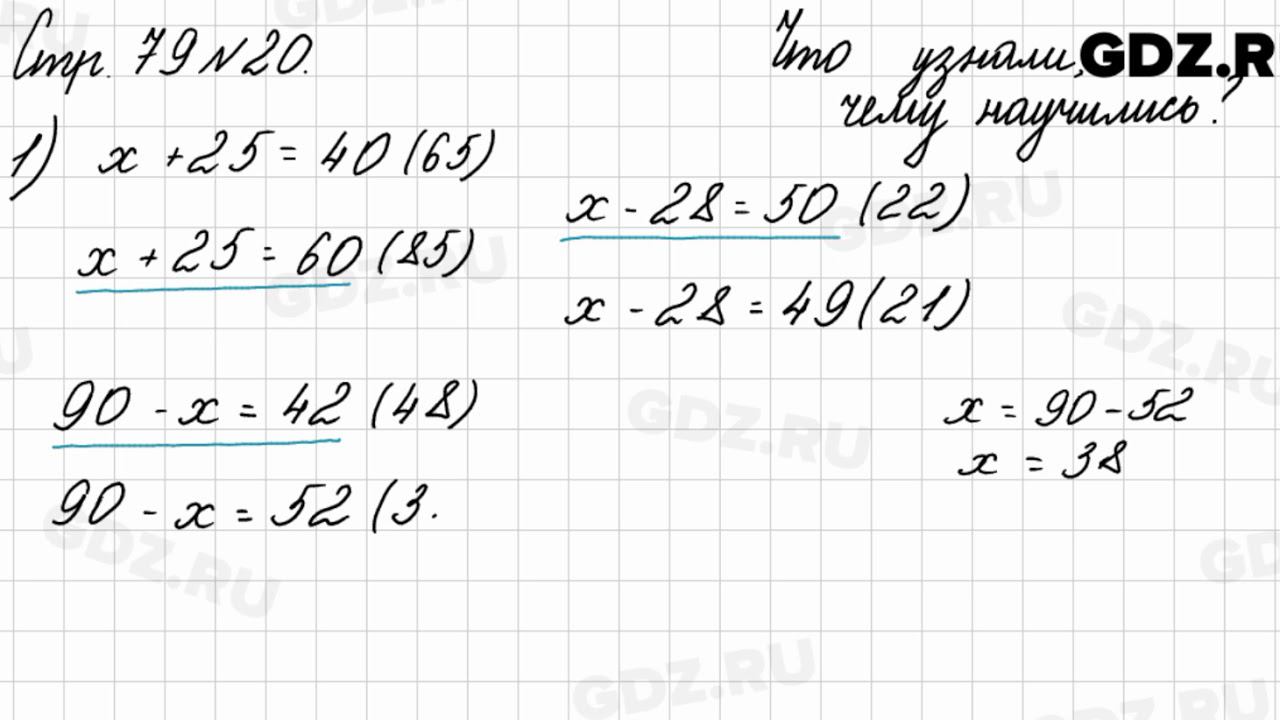 Стр. 79 N 20.
Что узнали,
чему научились?
GDZ.R
1) x + 25 = 40 (65)
x + 25 = 60 (85)
x - 28 = 50 (22)
x - 28 = 49 (21)
90 - x = 42 (48)
90 - x = 52 (3.
x = 90 - 52
x = 38
GDZ.RU
GDZ.RU
GDZ.RU
GDZ.RU
GDZ.RU
GDZ.RU